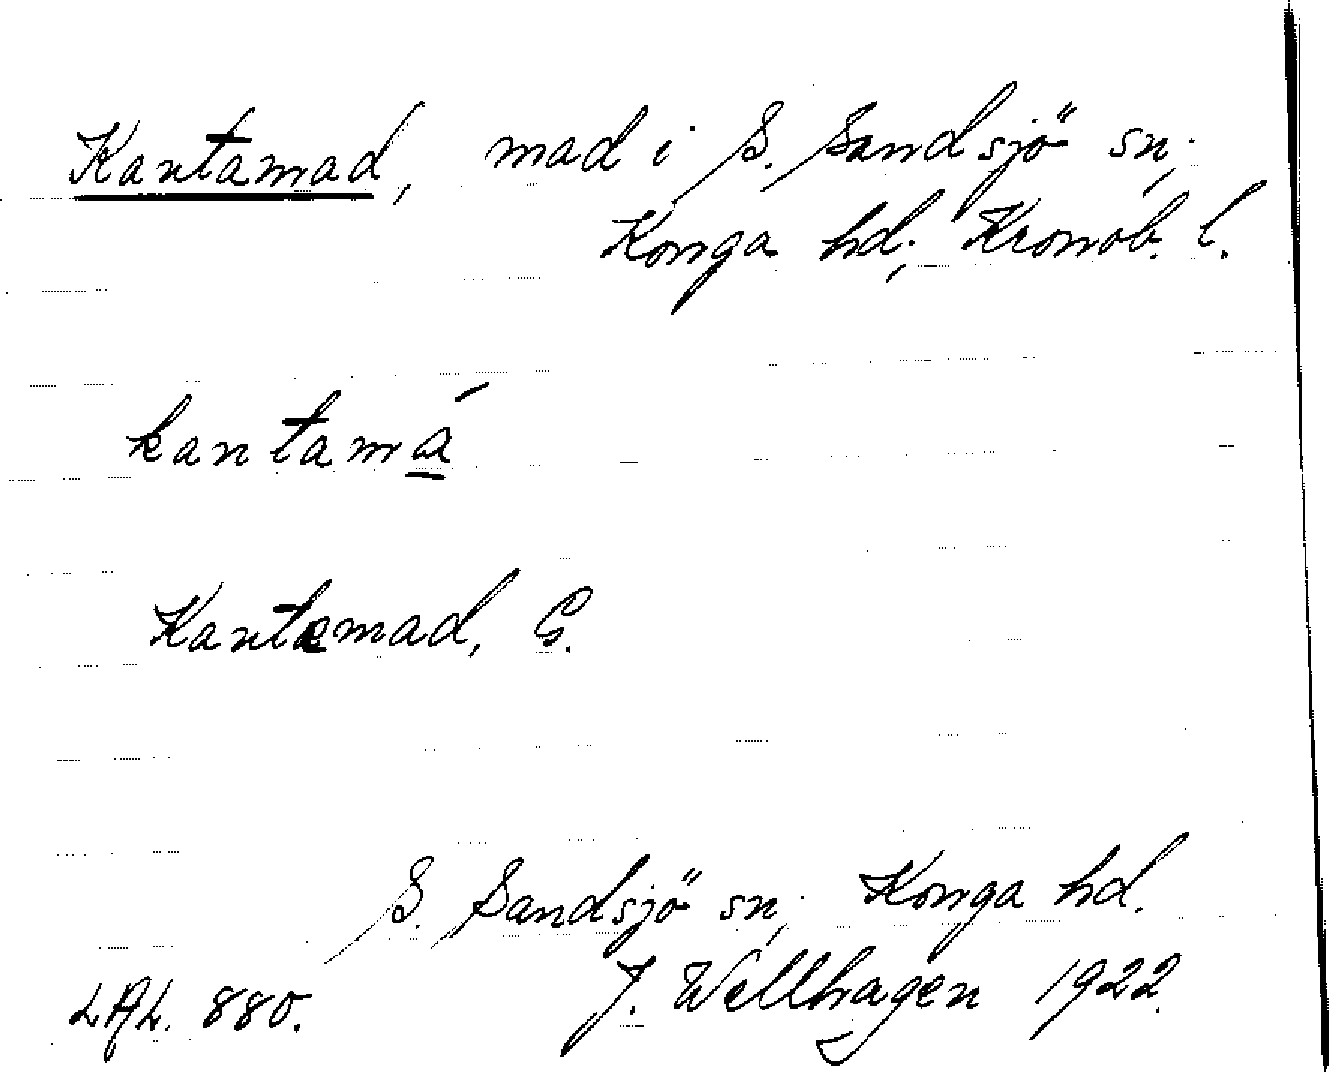 Kantamad, mad i S. Sandsjö sn,
Konga hd, Kronob. l.
kantamá
Kantemad, G.
S. Sandsjö sn, Konga hd.
LAL. 880. J. Wellhagen 1922.